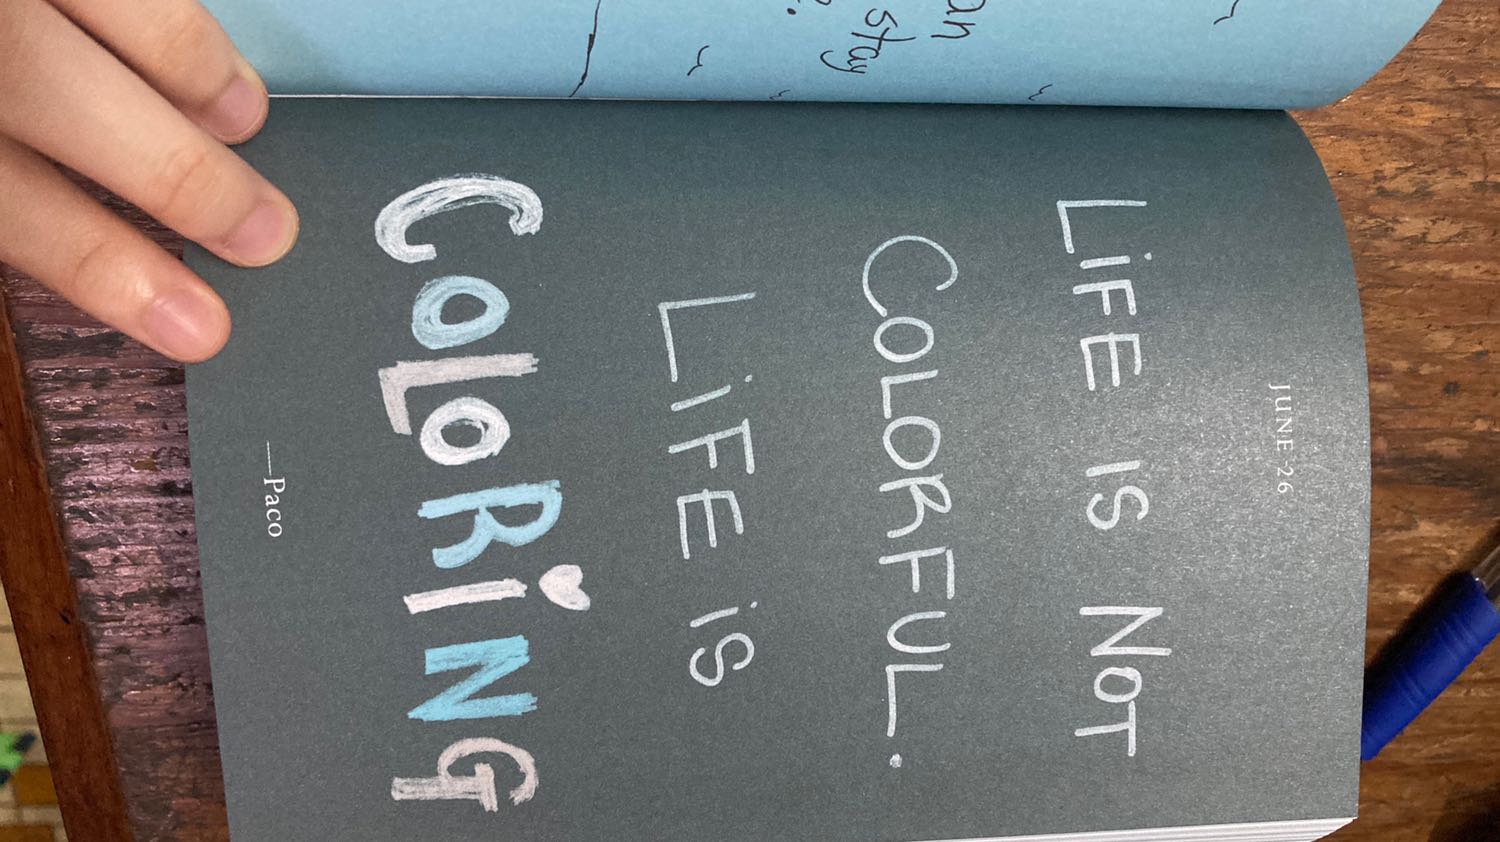 an
stay
JUNE 26
LiFE iS NOT
COLORFUL.
LiFE iS
COLORiNG
—Paco